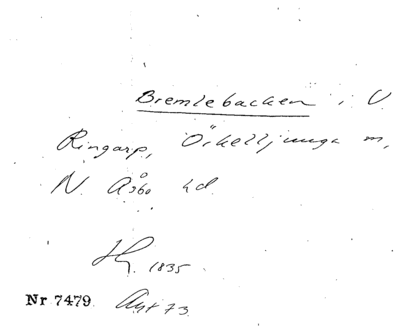 Bremlebacken i V
Ringarp, Örkelljunga m,
N. Åsbo hd.
Hy. 1835
Nr 7479. Avst 73